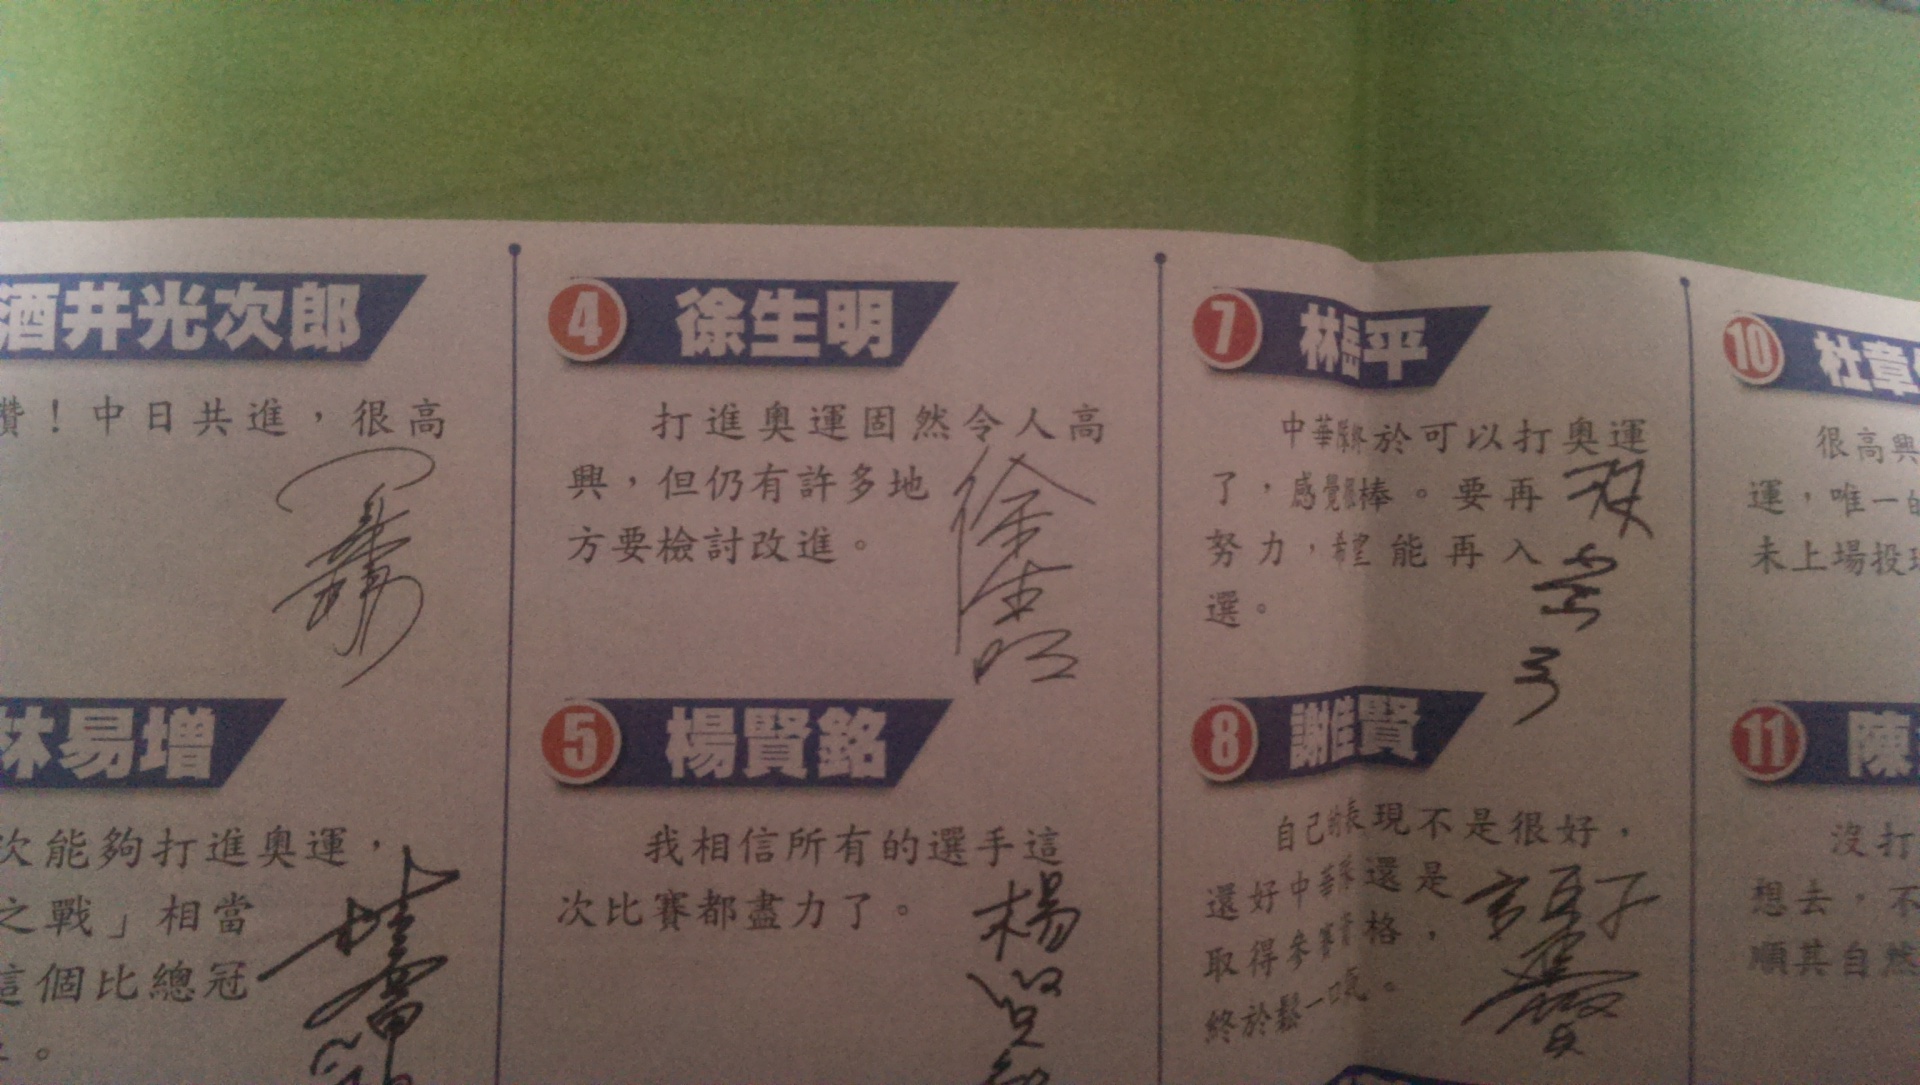 酒井光次郎
讚！中日共進，很高
林易增
次能夠打進奧運，
之戰」相當
這個比總冠
。
4 徐生明
打進奧運固然令人高
興，但仍有許多地
方要檢討改進。
徐生明
5 楊賢銘
我相信所有的選手這
次比賽都盡力了。
楊賢
7 林岳平
中華隊終於可以打奧運
了，感覺很棒。要再
努力，希望能再入
選。
8 謝佳賢
自己的表現不是很好，
還好中華隊還是
取得參賽資格，
終於鬆一口氣。
10 杜章
很高興
運，唯一的
未上場投球
11 陳
沒打
想去，不
順其自然